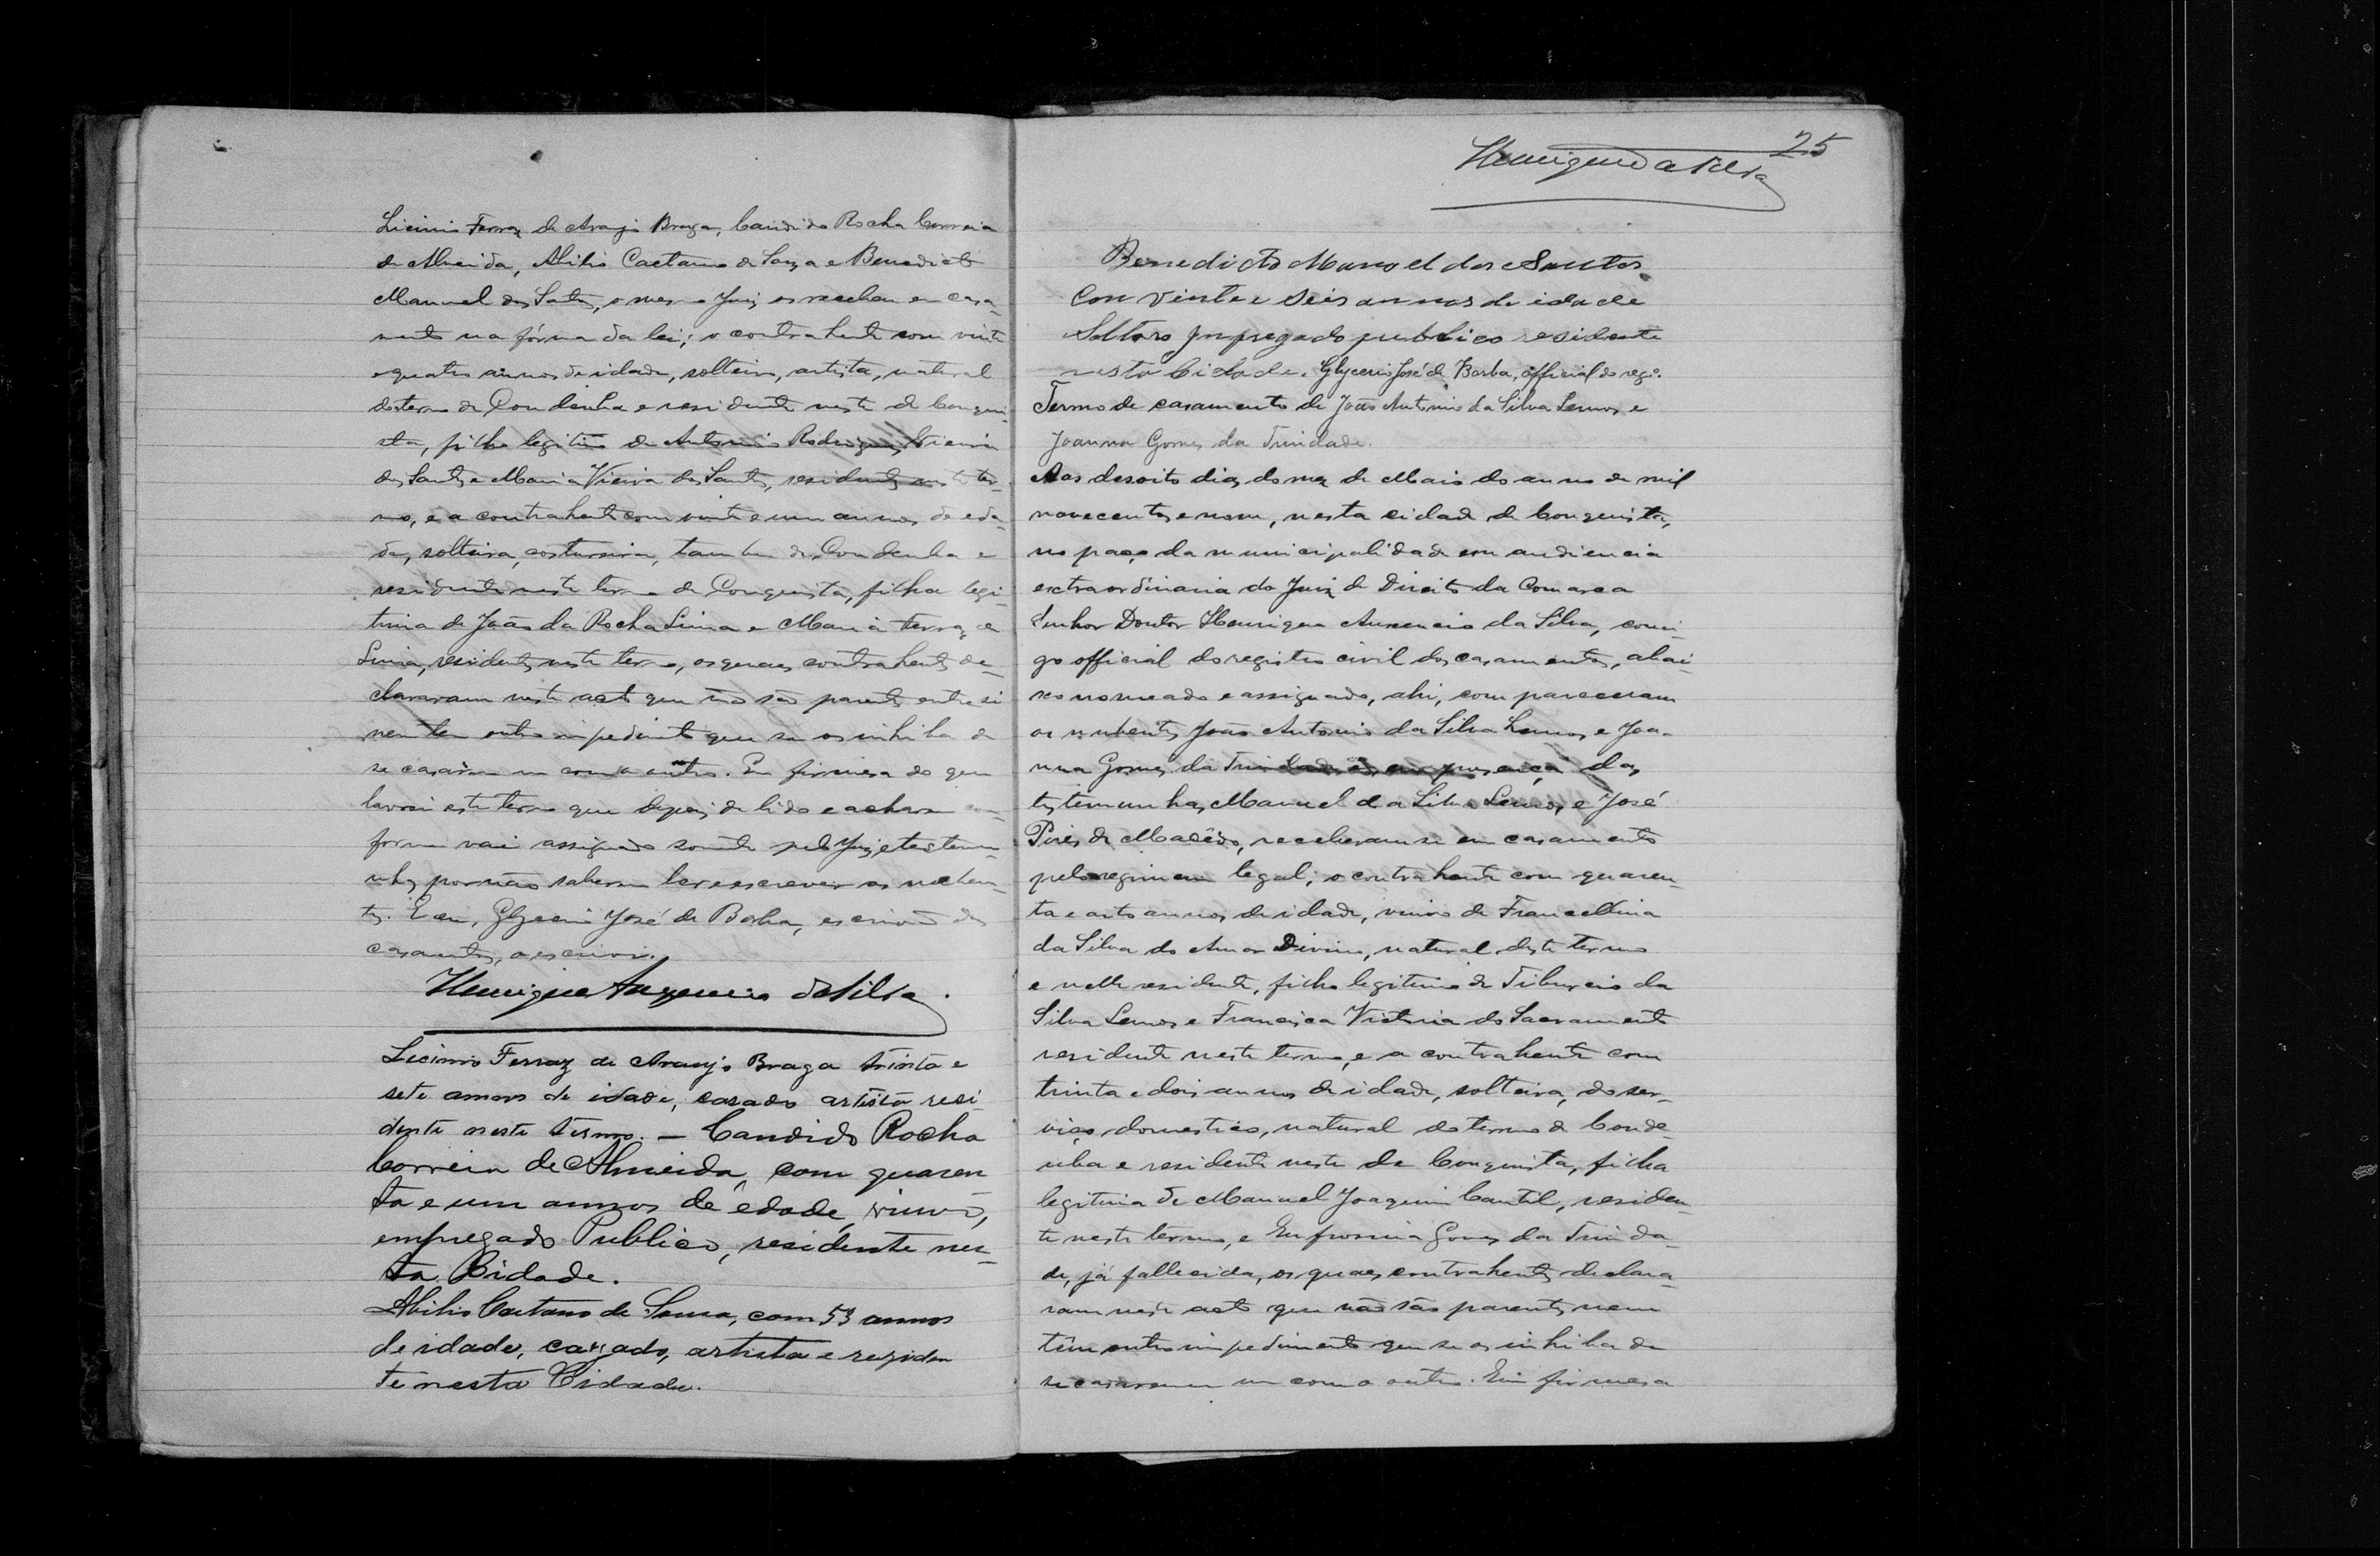 Licinio Ferraz de Araujo Braga, Candido Rocha Correia
de Almeida, Abilio Caetano de Souza e Benedicto
Manuel dos Santos, o mesmo Juiz os recebeu em casa-
mento na fórma da lei; o contrahente com vinte
e quatro annos de idade, solteiro, artista, natural
do termo de Condeuba e residente neste de Conqui-
sta, filho legitimo de Antonio Rodrigues Vieira
dos Santos e Maria Vieira dos Santos, residentes neste ter-
mo, e a contrahente com vinte e um annos de eda-
de, solteira, costureira, tambem de Condeuba e
residente neste termo de Conquista, filha legi-
tima de João da Rocha Lima e Maria Ferraz de
Lima, residentes neste termo, os quaes contrahentes de-
clararam neste acto que não são parentes entre si
nem tem outro impedimento que os inhiba de
se casarem um com o outro. Em firmesa do que
lavrei este termo que depois de lido e acharem con-
forme vai assignado sómente pelo Juiz e testemu-
nhas por não saberem ler e escrever os nuben-
tes. E eu, Glycerio José de Borba, escrivão dos
casamentos, o escrivi.
Henrique Auxencio da Silva.
Licinio Ferraz de Araujo Braga trinta e
sete annos de idade, casado artista resi-
dente neste termo. — Candido Rocha
Correia de Almeida, com quaren
ta e um annos de edade, viuvo,
empregado Publico, residente nes-
ta Cidade.
Abilio Caetano de Sousa, com 53 annos
de idade, cazado, artista e reziden
te nesta Cidade.
25
Henrique da Silva
Benedicto Manoel dos Santos
Con vinte e seis annos de idade
Soltero Impregado publico residente
nesta Cidade. Glycerio José de Borba, official do rego.
Termo de casamento de João Antonio da Silva Lemos e
Joanna Gomes da Trindade.
Aos desoito dias do mez de Maio do anno de mil
novecentos e nove, nesta cidade de Conquista,
no paço da municipalidade em audiencia
extraordinaria do Juiz de Direito da Comarca
Senhor Doutor Henrique Auxencio da Silva, comi-
go official do registro civil dos casamentos, abai-
xo nomeado e assignado, ahi, compareceram
os nubentes João Antonio da Silva Lemos e Joa-
nna Gomes da Trindade e, em presença das
testemunhas Manuel da Silva Lemos e José
Pires de Macêdo, receberam-se em casamento
pelo regimem legal; o contrahente com quaren-
ta e oito annos de idade, viuvo de Francellina
da Silva do Amor Divino, natural deste termo
e nelle residente, filho legitimo de Tiburcio da
Silva Lemos e Francisca Victoria do Sacramento
residente neste termo, e a contrahente com
trinta e dois annos de idade, solteira, do ser-
viço domestico, natural do termo de Conde-
uba e residente neste de Conquista, filha
legitima de Manuel Joaquim Cantil, residen-
te neste termo, e Eufrosina Gomes da Trinda-
de, já fallecida, os quaes contrahentes declara-
ram neste acto que não são parentes nem
têm outro impedimento que os inhiba de
se casarem um com o outro. Em firmesa